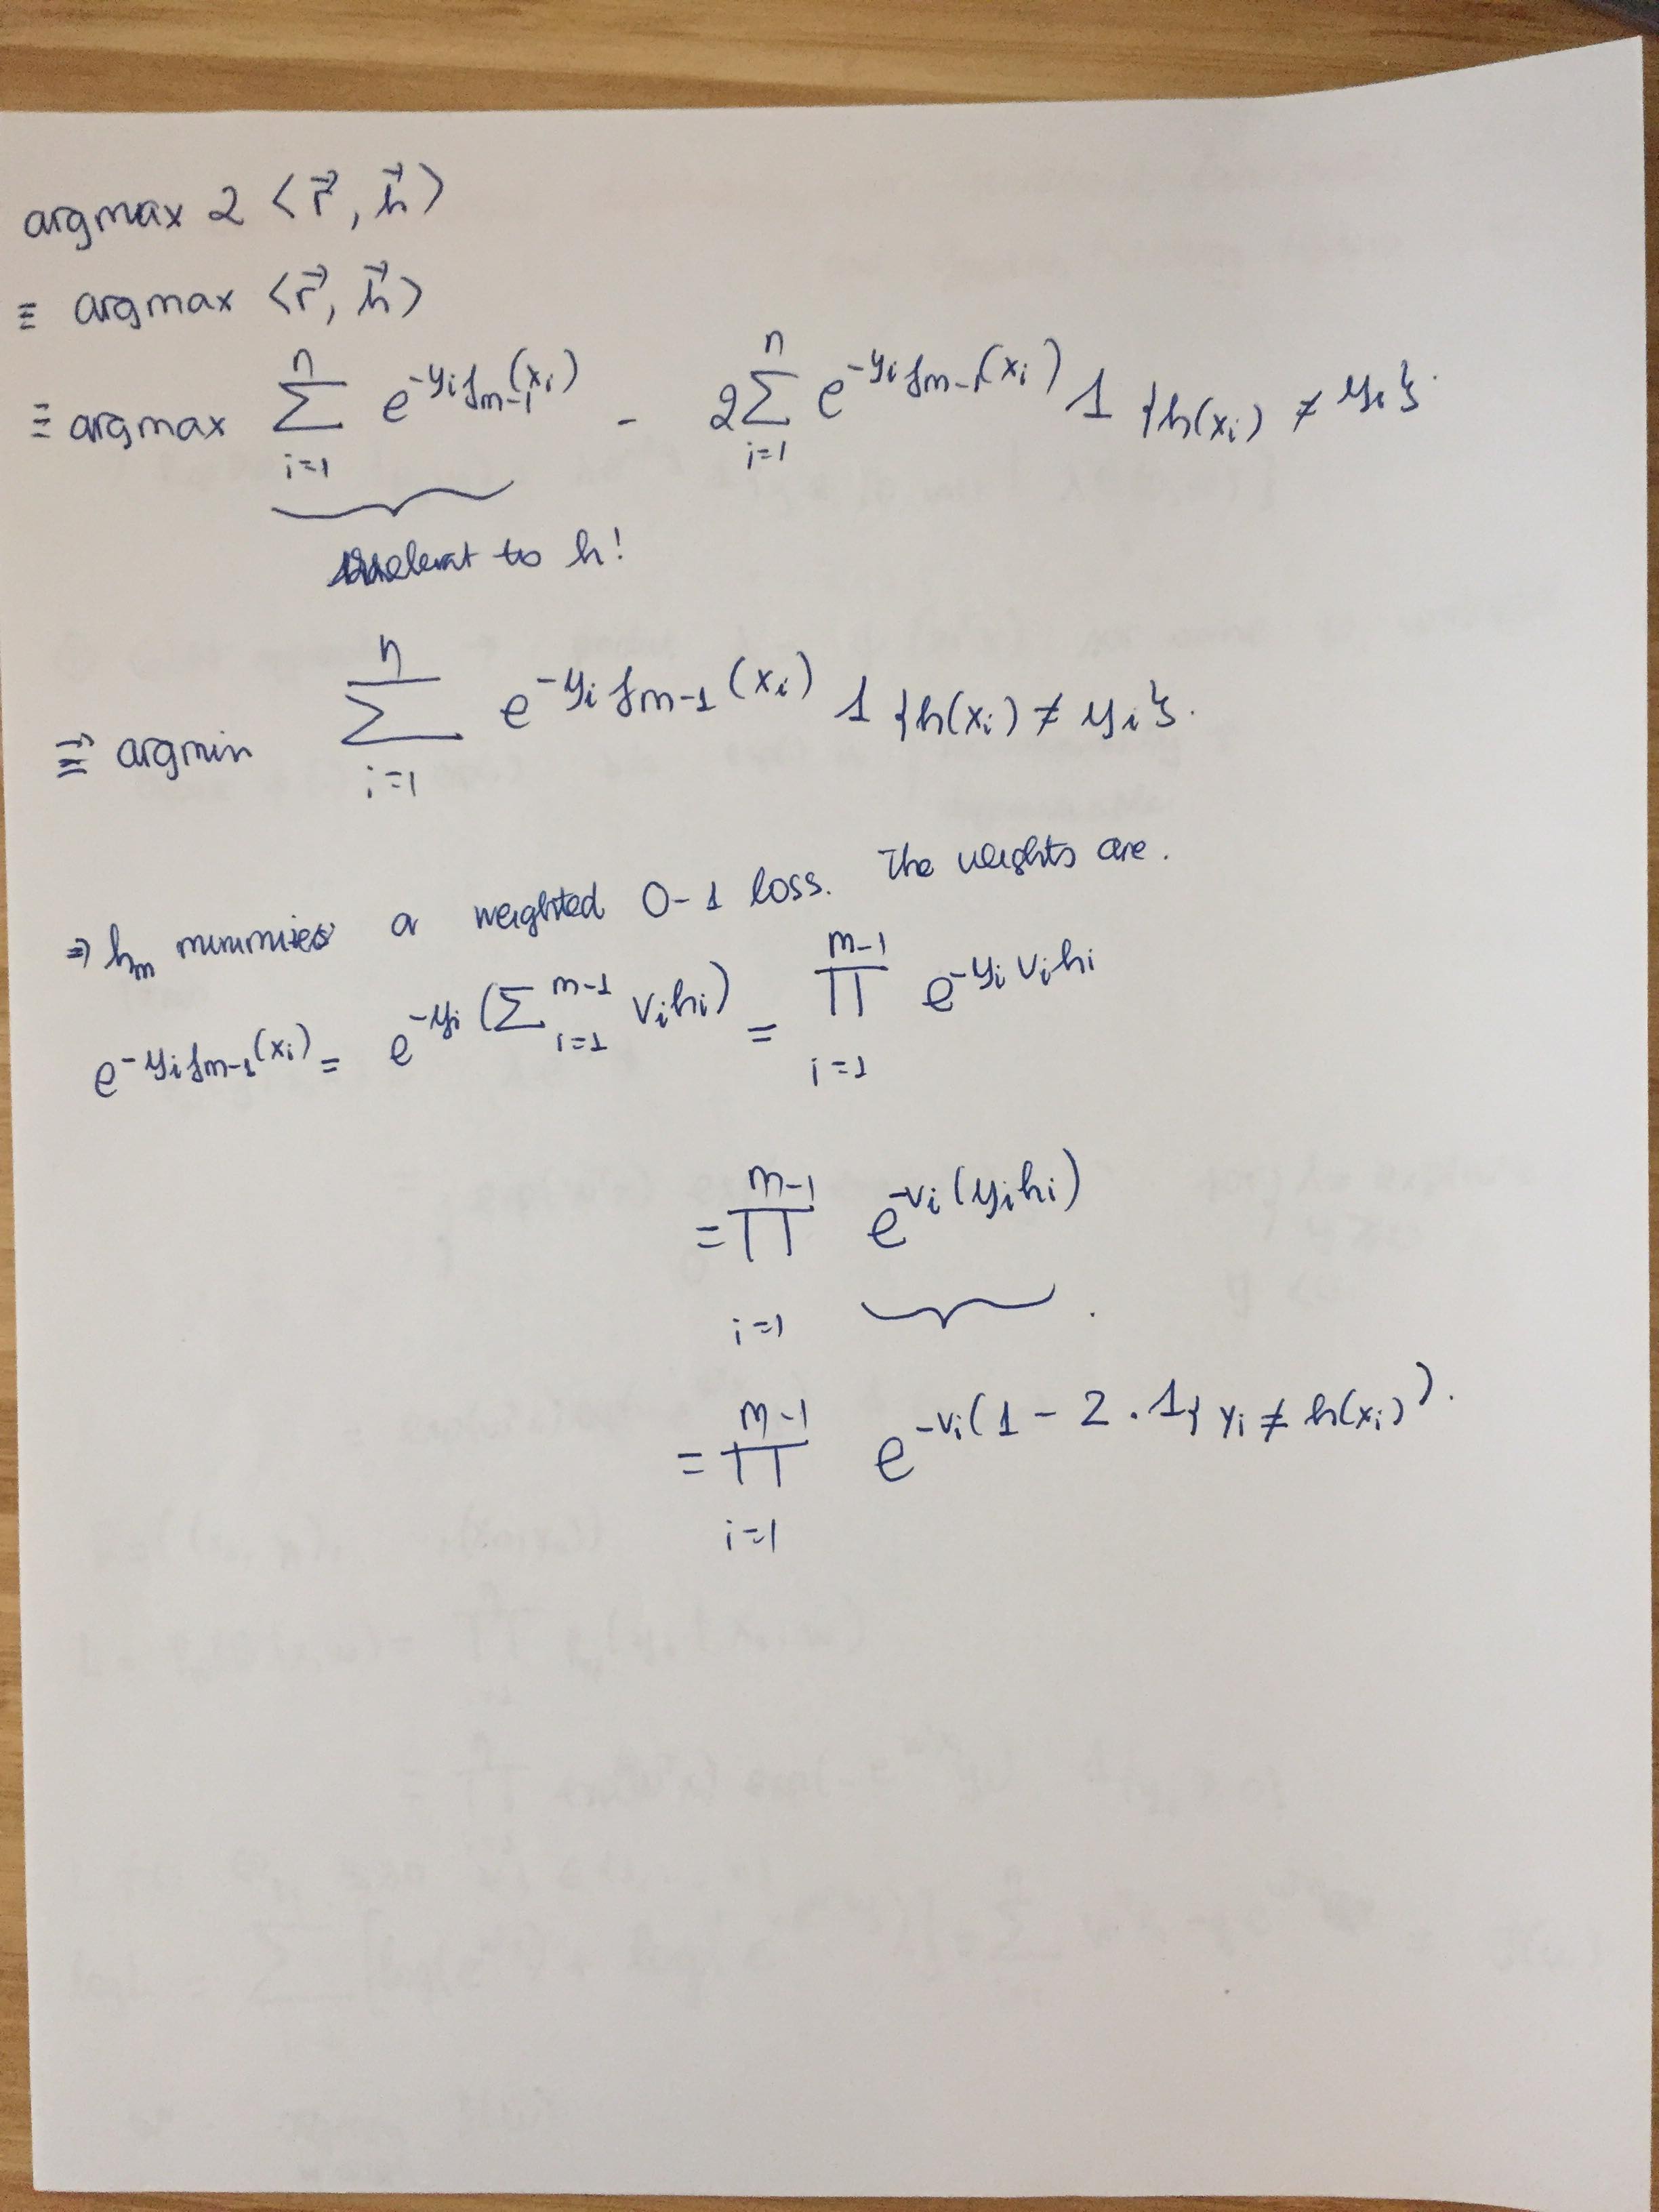 argmax 2 ⟨r⃗, h⃗⟩
≡ argmax ⟨r⃗, h⃗⟩
≡ argmax ∑_{i=1}^{n} e^{-y_i f_{m-1}(x_i)} - 2∑_{i=1}^{n} e^{-y_i f_{m-1}(x_i)} 1_{{h(x_i) ≠ y_i}}.
to h!
≡ argmin ∑_{i=1}^{n} e^{-y_i f_{m-1}(x_i)} 1_{{h(x_i) ≠ y_i}}.
⇒ h_m minimizes a weighted 0-1 loss. The weights are.
e^{-y_i f_{m-1}(x_i)} = e^{-y_i (∑_{i=1}^{m-1} v_i h_i)} = ∏_{i=1}^{m-1} e^{-y_i v_i h_i}
= ∏_{i=1}^{m-1} e^{-v_i (y_i h_i)}.
= ∏_{i=1}^{m-1} e^{-v_i (1 - 2 . 1_{{ y_i ≠ h(x_i)}).